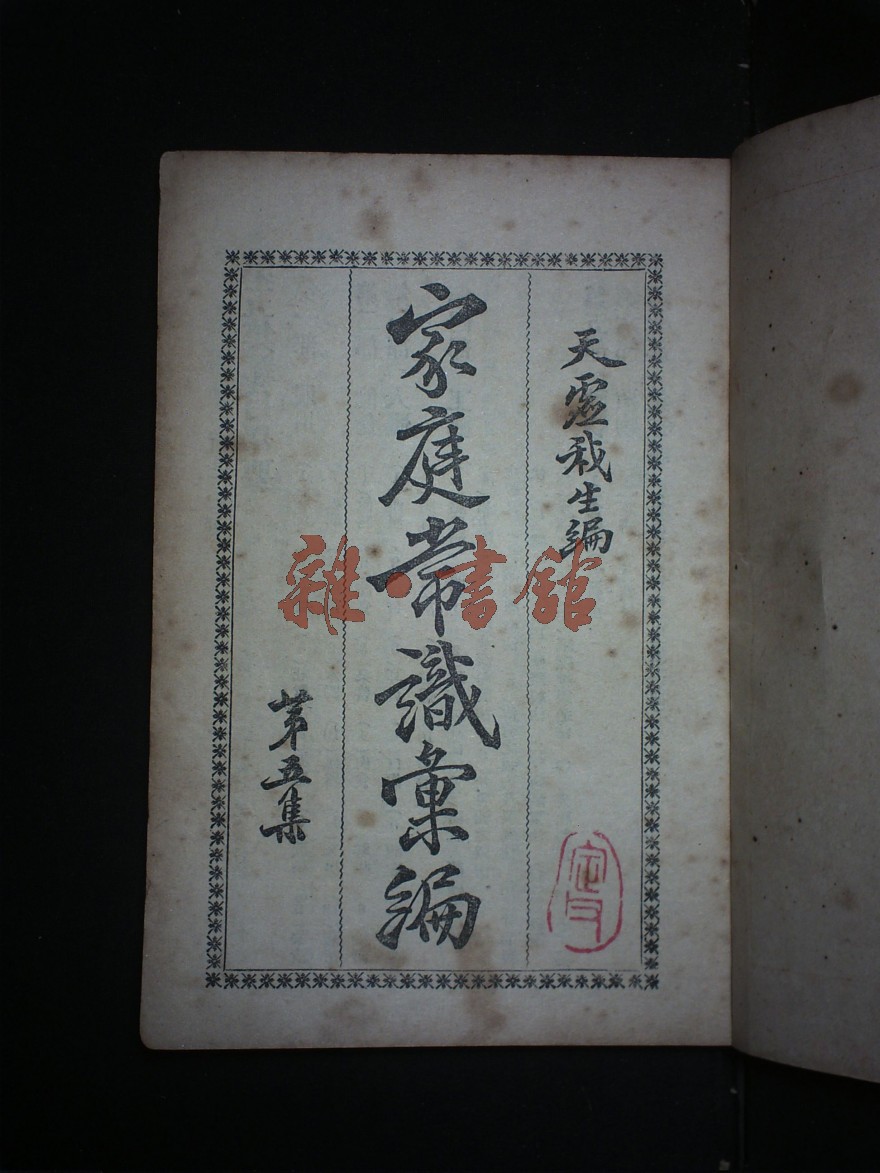 天虛我生編
家庭常識彙編
第五集
雜·書館